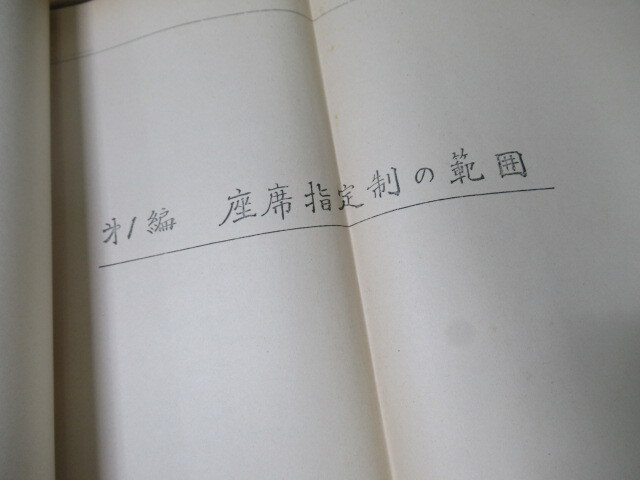 㐧1編 座席指定制の範囲